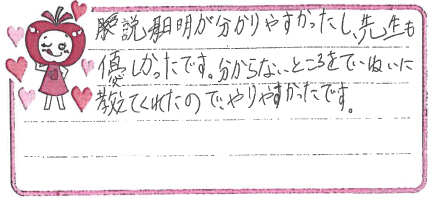 説明が分かりやすかったし、先生も
優しかったです。分からないところをていねいに
教えてくれたので、やりやすかったです。